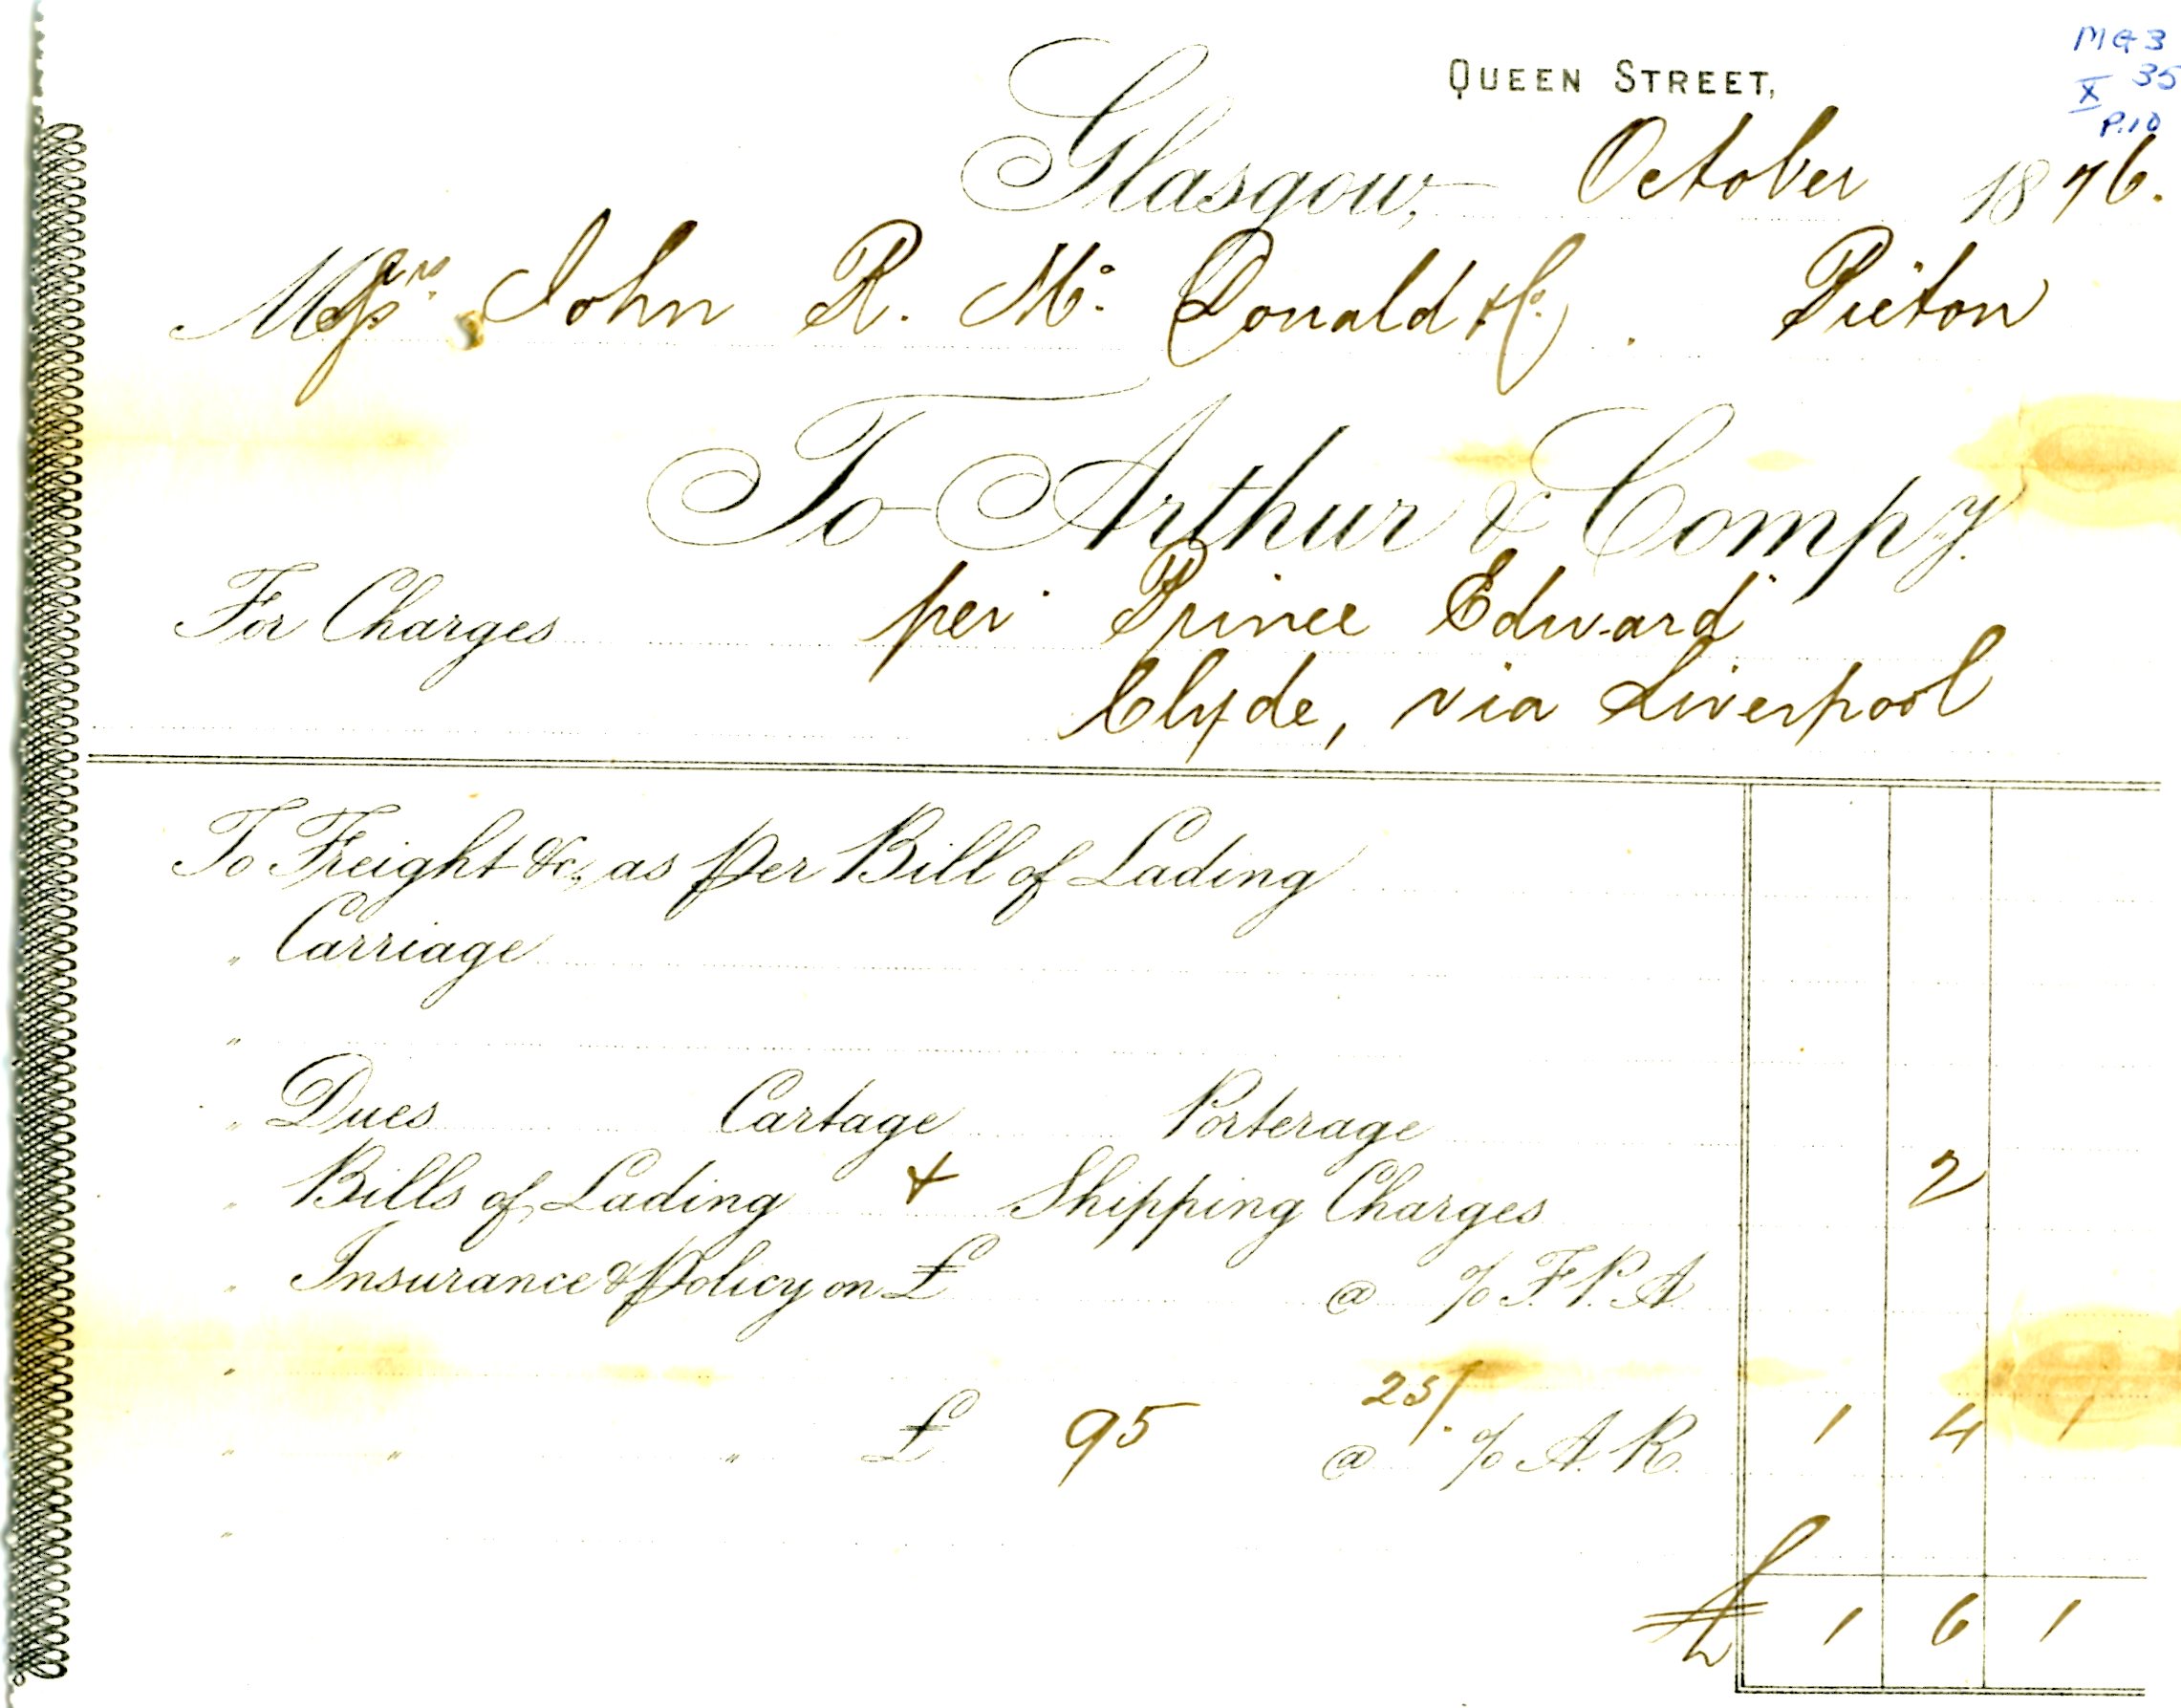 MG3
35
X
P.10
QUEEN STREET,
Glasgow, October 1876.
Messrs John R. Mc Donald & Co. Picton
To Arthur & Compy.
For Charges per Prince Edward
Clyde, via Liverpool
To Freight &c, as per Bill of Lading
" Carriage
"
" Dues Cartage Porterage
" Bills of Lading & Shipping Charges 2
" Insurance & Policy on £ @ % F.P.A.
"
" " " £ 95 @ 25/. % A.R. 1 4 1
"
£ 1 6 1